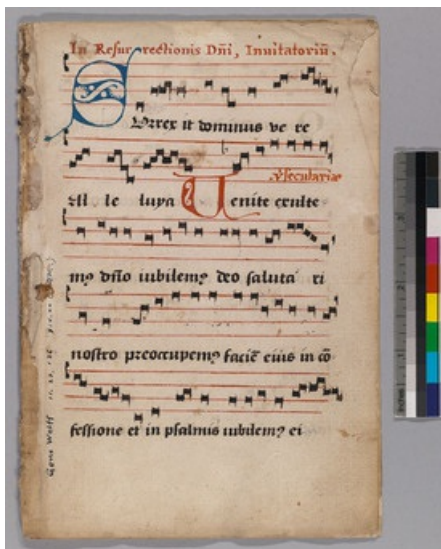 In Resurrectionis Dñi, Inuitatoriũ.
Surrex it dominus ve re
all le luya Uenite exulte
mꝰ dño iubilemꝰ deo saluta ri
nostro preoccupemꝰ faciẽ eius in cõ
fessione et in psalmis iubilemꝰ ei